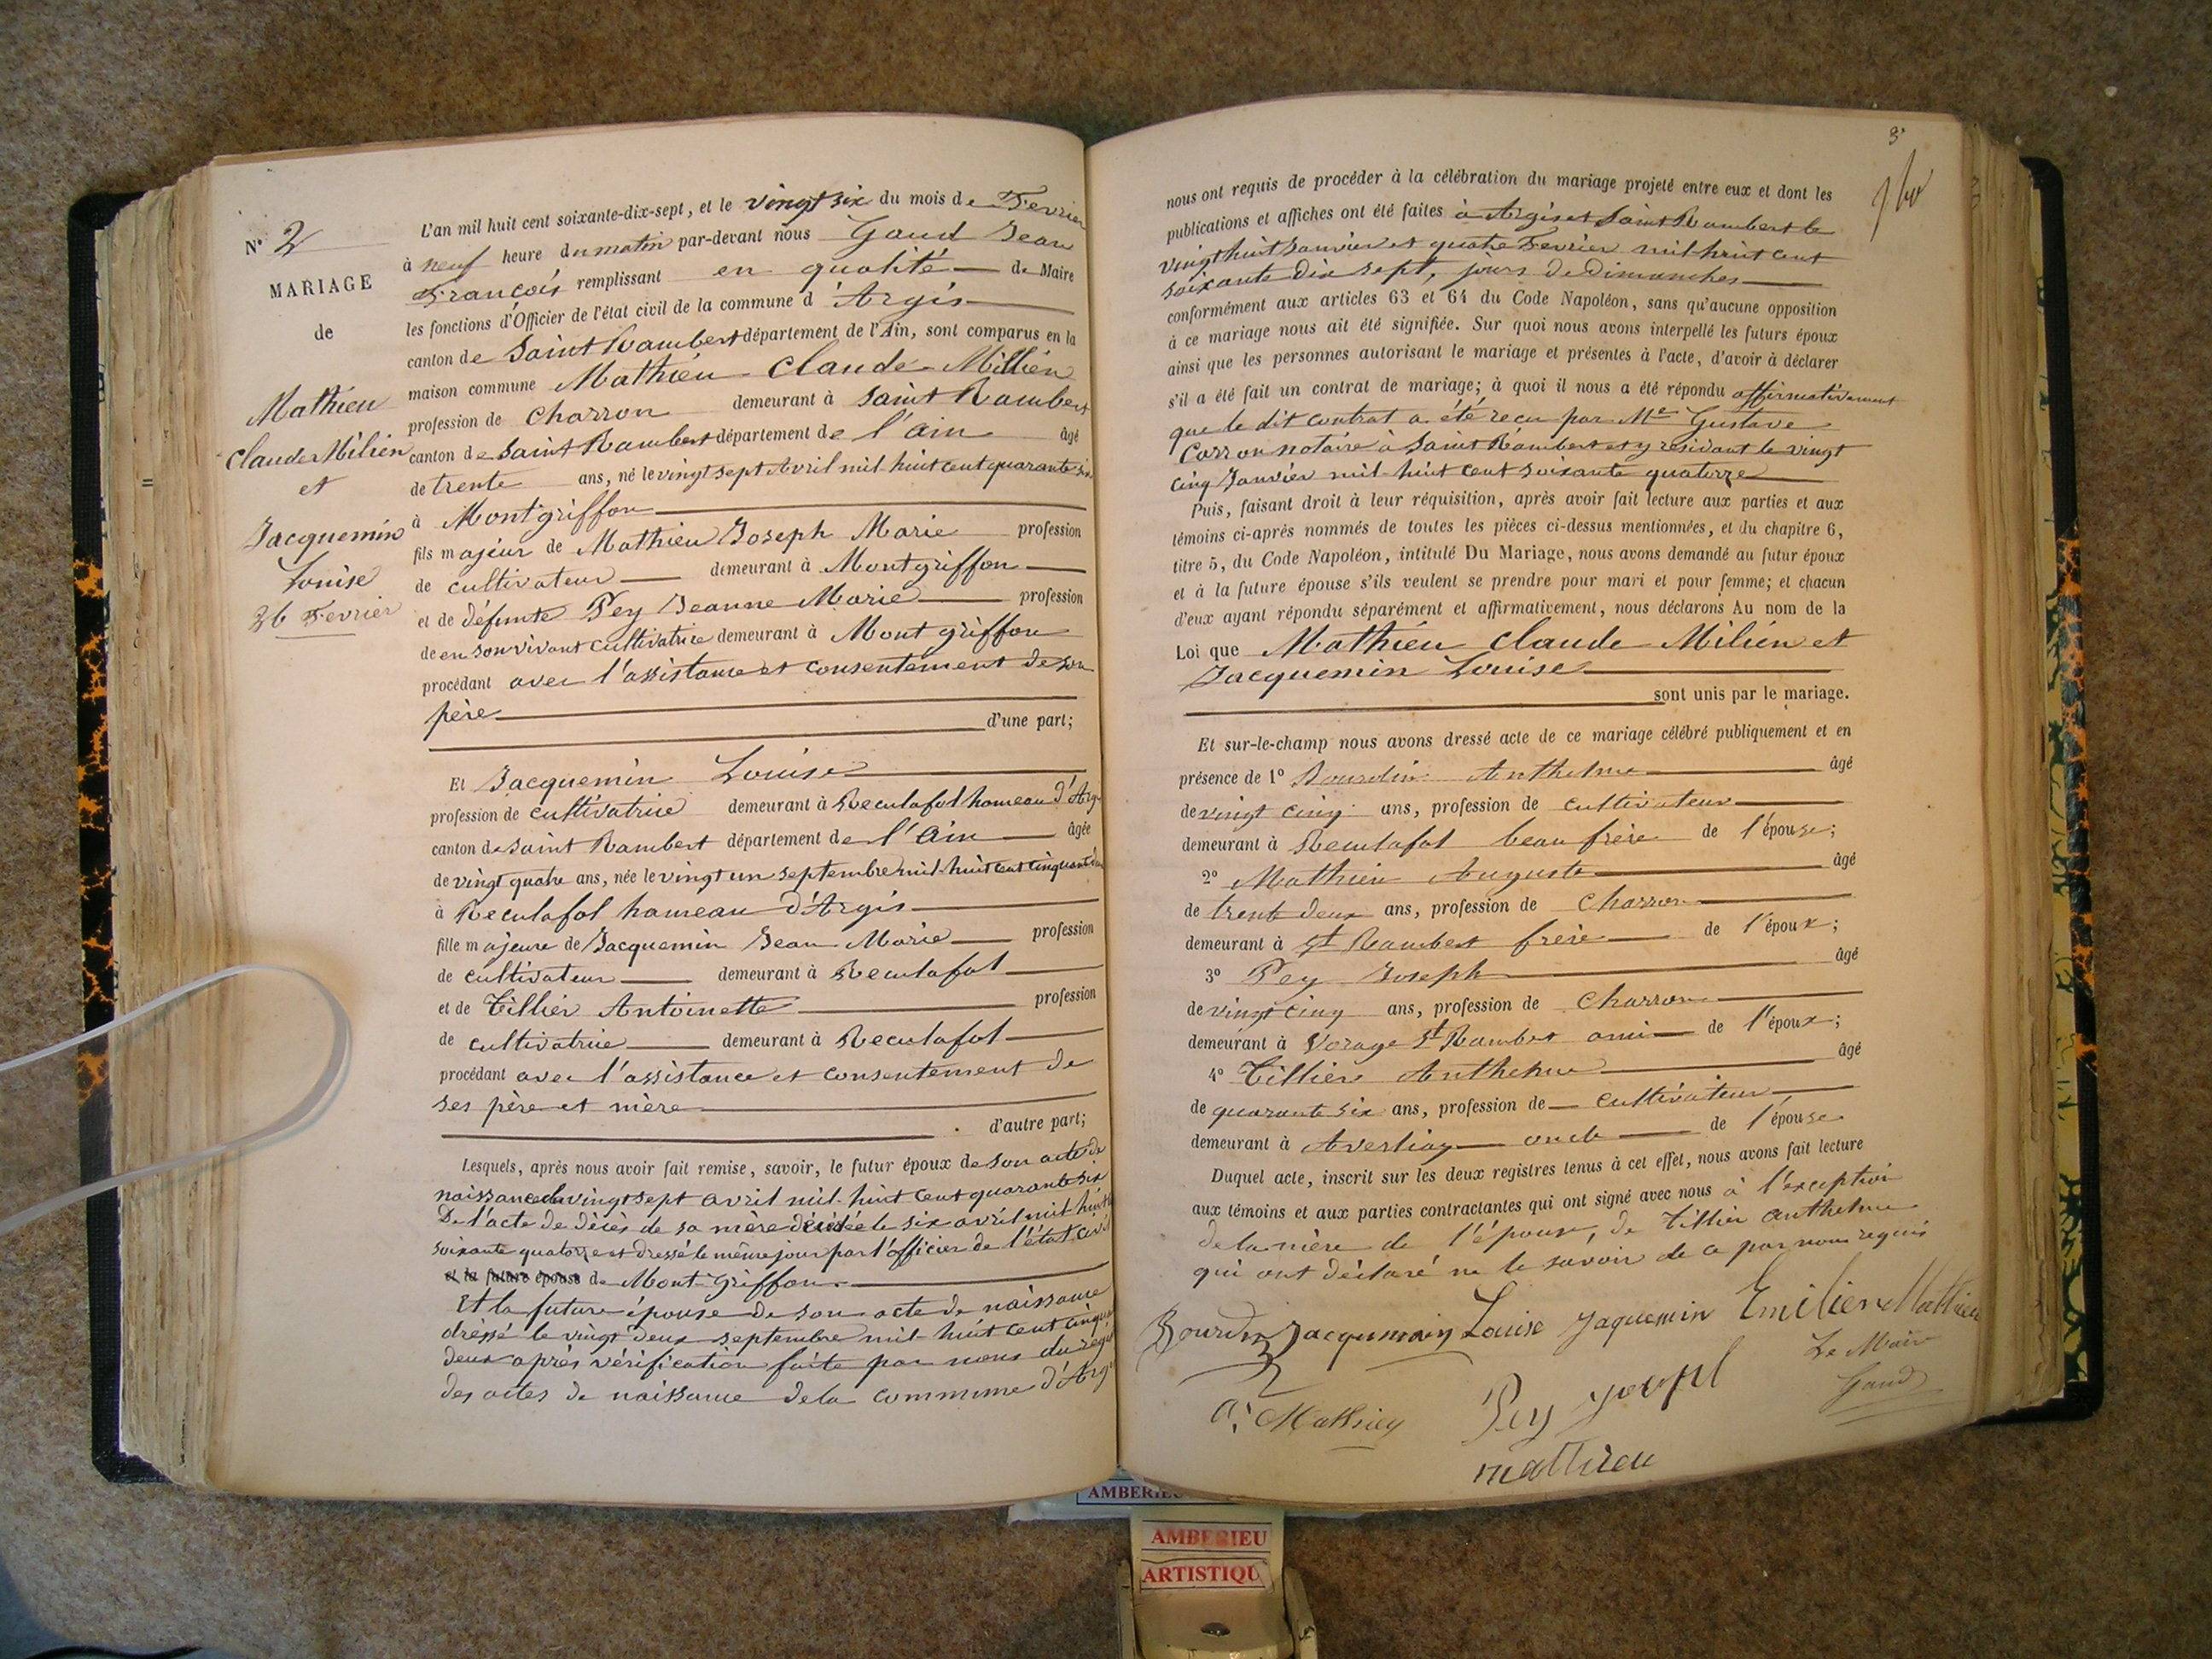 N° 2
MARIAGE
de
Mathieu
Claude Milien
et
Jacquemin
Louise
26 Fevrier
L'an mil huit cent soixante-dix-sept, et le vingt six du mois de Fevrier
à neuf heure du matin par-devant nous Gaud Jean
François remplissant en qualité de Maire
les fonctions d'Officier de l'état civil de la commune d'Argis
canton de Saint Rambert département de l'Ain, sont comparus en la
maison commune Mathieu Claude Millien
profession de Charron demeurant à Saint Rambert
canton de Saint Rambert département de l'Ain âgé
de trente ans, né le vingt sept Avril mil huit cent quarante six
à Montgriffon
fils majeur de Mathieu Joseph Marie profession
de cultivateur demeurant à Montgriffon
et de défunte Pey Jeanne Marie profession
de en son vivant cultivatrice demeurant à Mont griffon
procédant avec l'assistance et consentement de son
père
d'une part;
Et Jacquemin Louise
profession de cultivatrice demeurant à Reculafol hameau d'Arg
canton de Saint Rambert département de l'Ain âgée
de vingt quatre ans, née le vingt un septembre mil huit cent cinquante
à Reculafol hameau d'Argis
fille majeure de Jacquemin Jean Marie profession
de cultivateur demeurant à Reculafol
et de Tillier Antoinette profession
de cultivatrice demeurant à Reculafol
procédant avec l'assistance et consentement de
ses père et mère
d'autre part;
Lesquels, après nous avoir fait remise, savoir, le futur époux de son acte de
naissance du vingt sept avril mil huit cent quarante six
De l'acte de décès de sa mère décédée le six avril mil huit
soixante quatorze et dressé le même jour par l'officier de l'état civil
et la future épouse de Mont-Griffon.
Et la future épouse de son acte de naissance
dréssé le vingt deux septembre mil huit cent cinqu
deux après vérification faite par nous du regi
des actes de naissance de la commune d'Arg
3
nous ont requis de procéder à la célébration du mariage projeté entre eux et dont les
publications et affiches ont été faites à Argis et Saint Rambert le
vingt huit Janvier et quatre Fevrier mil huit cent
soixante dix sept, jours de Dimanches
conformément aux articles 63 et 64 du Code Napoléon, sans qu'aucune opposition
à ce mariage nous ait été signifiée. Sur quoi nous avons interpellé les futurs époux
ainsi que les personnes autorisant le mariage et présentes à l'acte, d'avoir à déclarer
s'il a été fait un contrat de mariage; à quoi il nous a été répondu affirmativement
que le dit contrat a été reçu par Me Gustave
Carron notaire à Saint Rambert et y résidant le vingt
cinq Janvier mil huit cent soixante quatorze
Puis, faisant droit à leur réquisition, après avoir fait lecture aux parties et aux
témoins ci-après nommés de toutes les pièces ci-dessus mentionnées, et du chapitre 6,
titre 5, du Code Napoléon, intitulé Du Mariage, nous avons demandé au futur époux
et à la future épouse s'ils veulent se prendre pour mari et pour femme; et chacun
d'eux ayant répondu séparément et affirmativement, nous déclarons Au nom de la
Loi que Mathieu Claude Milien et
Jacquemin Louise
sont unis par le mariage.
Et sur-le-champ nous avons dressé acte de ce mariage célébré publiquement et en
présence de 1° Bourdin Anthelme âgé
de vingt cinq ans, profession de cultivateur
demeurant à Reculafol beau frère de l'épouse;
2° Mathieu Auguste âgé
de trente deux ans, profession de Charron
demeurant à St Rambert frère de l'époux;
3° Pey Joseph âgé
de vingt cinq ans, profession de Charron
demeurant à Vorage St Rambert ami de l'époux;
4° Tillier Anthelme âgé
de quarante six ans, profession de cultivateur
demeurant à oncle de l'épouse
Duquel acte, inscrit sur les deux registres tenus à cet effet, nous avons fait lecture
aux témoins et aux parties contractantes qui ont signé avec nous à l'exception
de la mère de l'épouse, de Tillier Anthelme
qui ont déclaré ne le savoir de ce par nous requis
Bourdin Jacquemain Louise Jaquemin Emilien Mathieu
Le Maire
Gaud
A. Mathieu Pey Joseph
mathieu
AMBERIEU
AMBERIEU
ARTISTIQU